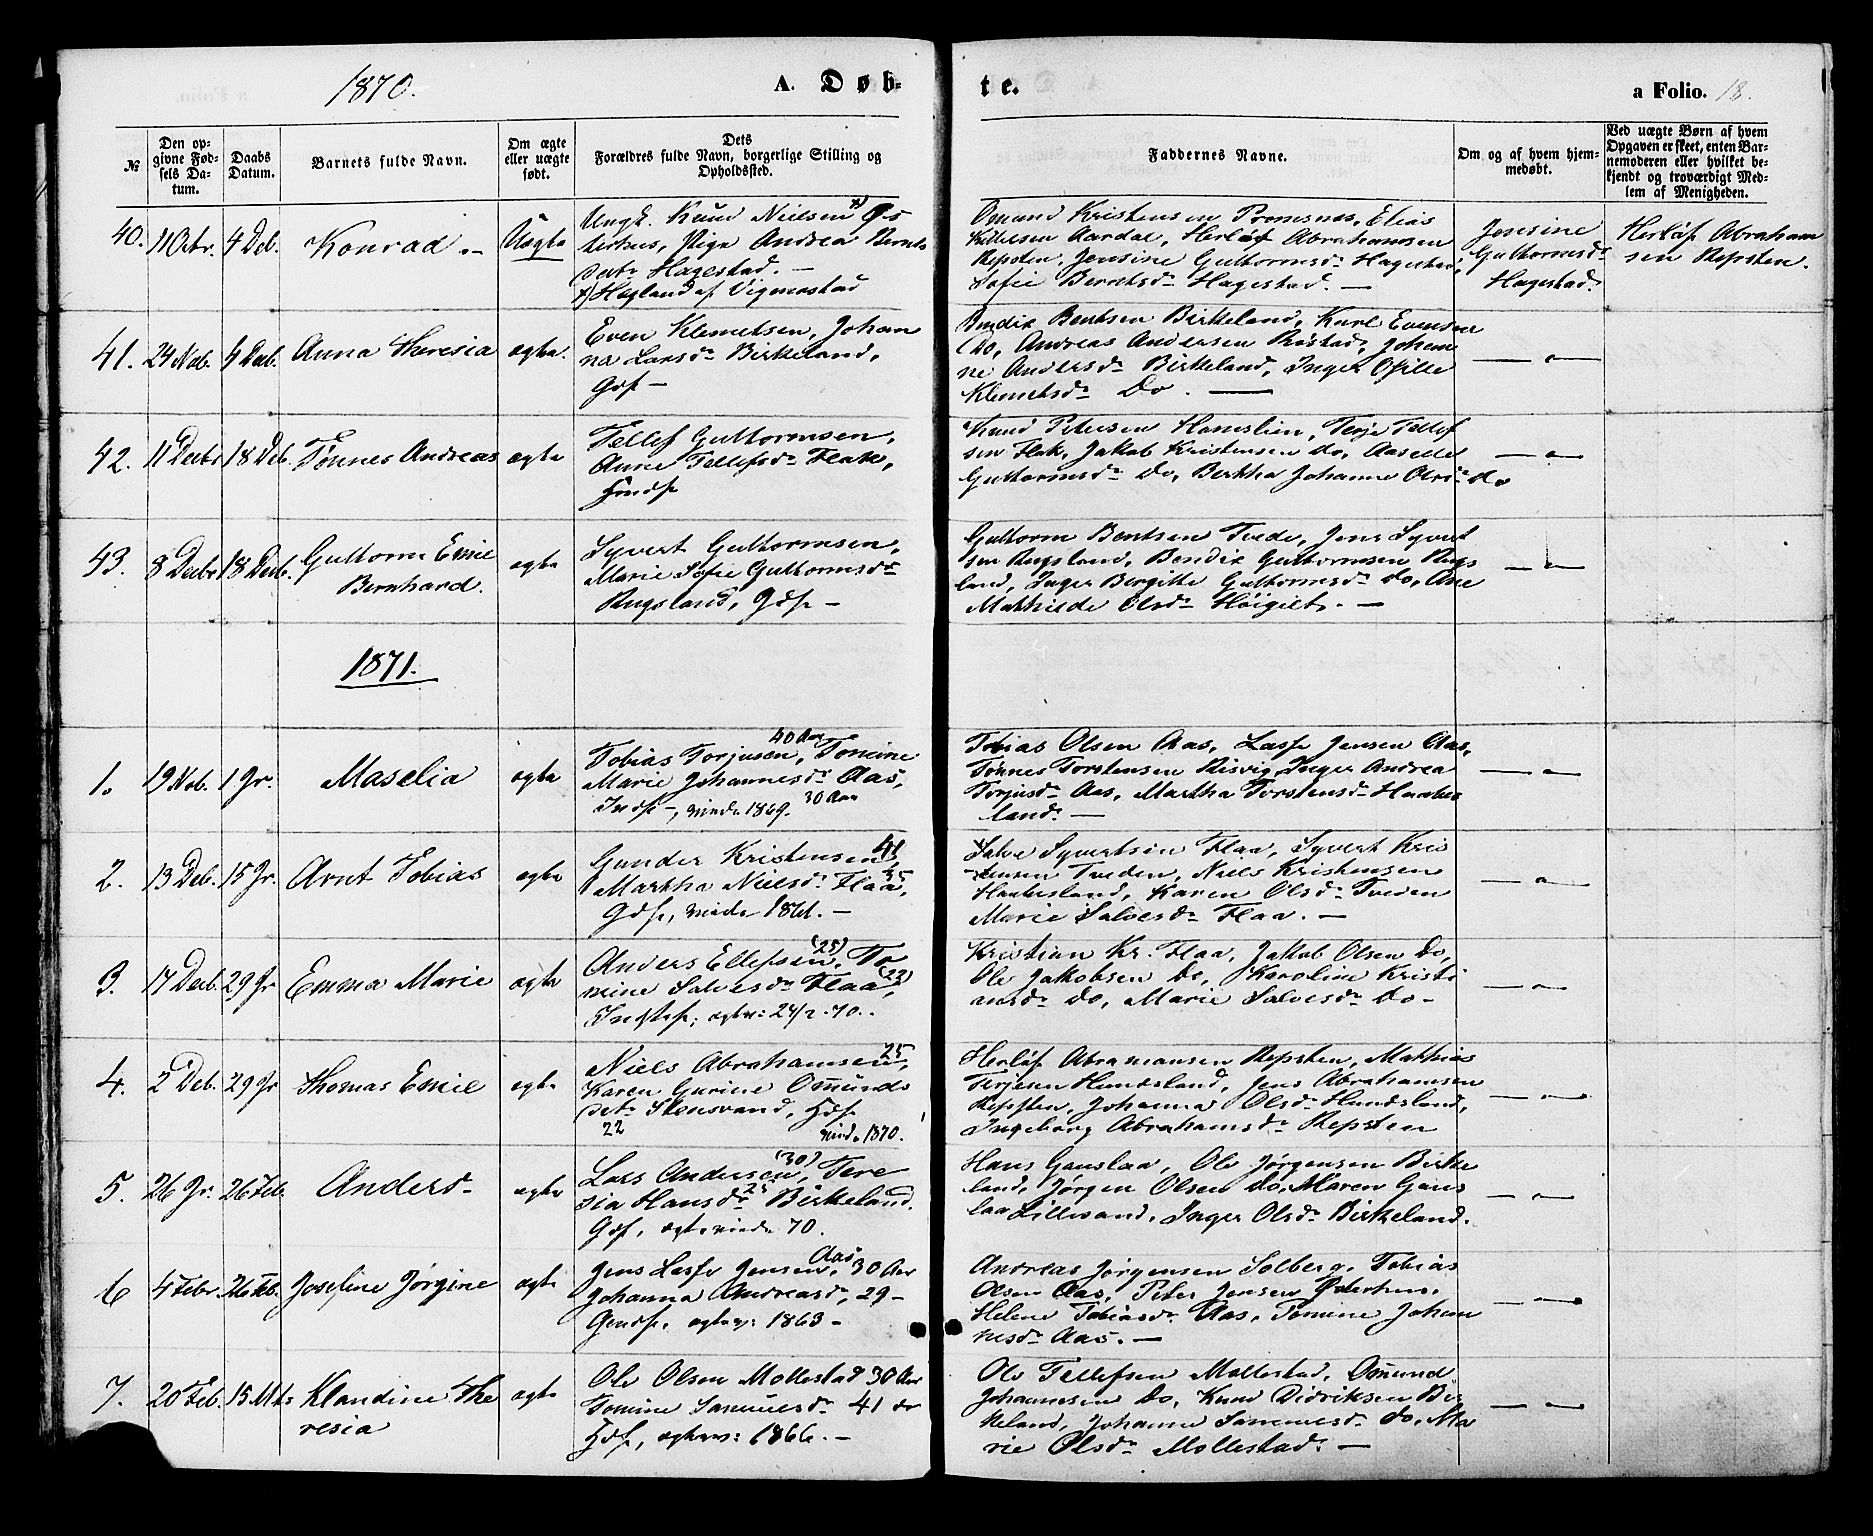 1870. A. Døb-
te. a Folio. 18.
№
Den op-
givne Fød-
sels Da-
tum.
Daabs
Datum.
Barnets fulde Navn.
Om ægte
eller uægte
født.
Dets
Forældres fulde Navn, borgerlige Stilling og
Opholdssted.
Faddernes Navne.
Om og af hvem hjem-
medøbt.
Ved uægte Børn af hvem
Opgaven er skeet, enten Bar-
nemoderen eller hvilket be-
kjendt og troværdigt Med-
lem af Menigheden.
40. 11 Octbr. 4 Deb. Konrad.- Uægte
Ungk. Knud Nielsen x)
Pige Andrea Bernts
datr Hagestad. -
x) Hægland af Vigmostad
Omund Kristensen Elias
Kittelsen Aardal, Herløf Abrahamsen
Repsten, Jensine Guttormsdr Hagestad,
Sofie Berntsdr Hagestad. -
Jensine
Guttormsdr
Hagestad.
Herløf Abraham
sen Repsten.
41. 24 Nob. 4 Decb. Anna Theresia ægte.
Even Klemetsen, Johan
ne Larsdr Birkeland,
Gdf -
Bendix Bentsen Birkeland, Karl Evensen
Do, Andreas Andersen Johan
ne Andersdr Birkeland, Inger
Klemetsdr Do. -
42. 11 Decbr 18 Deb. Tønnes Andreas ægte
Tellef Guttormsen,
Anne Tellefsdr Flak,
Knud Petersen Homelien, Terje Tellef
sen Flak, Jakob Kristensen do, Aaselle
Guttormsdr Do, Berthe Johanne Olsdr do
43. 8 Decbr 18 Decb. Guttorm Emil
Bernhard. ægte
Syvert Guttormsen,
Marie Sofie Guttormsdr
Rugsland, Gdf -
Guttorm Bentsen Tvede, Jens Syvert
sen Rugsland, Bendix Guttormsen Rugs
land, Inger Birgitte Guttormsdr do, Ane
Mathilde Olsdr Høigilt. -
1871.
1. 19 Nob. 1 Jr. Maselia ægte
40 Aar
Tobias Torjusen, Tomine
Marie Johannesdr Aas,
Indf -, viede 1869. 30 Aar
Tobias Olsen Aas, Lasse Jensen Aas,
Tønnes Torstensen Risvig, Inger Andrea
Torjusdr Aas, Martha Torstensdr Haabes
land. -
2. 13 Deb. 15 Jr. Arnt Tobias ægte
Gunder Kristensen, 41
Martha Nielsdr Flaa, 35
Gdf, viede 1861. -
Salve Syvertsen Flaa, Syvert Kris
tensen Tveden, Niels Kristensen
Haabesland, Karen Olsdr Tveden
Marie Salvesdr Flaa. -
3. 17 Decb. 29 Jr Emma Marie ægte
Anders Ellefsen (25), To
mine Salvesdr Flaa, (23)
ægtev: 24/2 -70.
Kristian Kr. Flaa, Jakob Olsen Do,
Ole Jakobsen Do, Karoline Kristi
ansdr do, Marie Salvesdr Do -
4. 2 Deb. 29 Jr Thomas Emil ægte
Niels Abrahamsen, 25
Karen Gurine Omunds
datr Stensvand, Hdf
22 viede 1870.
Herløf Abramansen Repsten, Mathias
Terjesen Hundsland, Jens Abrahamsen
Repsten, Johanna Olsdr Hundsland,
Ingeborg Abrahamsdr Repsten
5. 26 Jr. 26 Feb. Anders - ægte
Lars Andersen (30), Tere
sia Hansdr Birkeland.
Gdf, ægteviede 70.
Hans Gauslaa, Ole Jørgensen Birke
land, Jørgen Olsen Do, Maren Gaus
laa Lillesand, Inger Olsdr Birkeland.
6 4 Febr. 26 Feb. Josefine Jørgine ægte
Jens Lasse Jensen, Aas 30 Aar
Johanna Andreasdr, 29 -
ægtev: 1863 -
Andreas Jørgensen Solberg, Tobias
Olsen Aas, Peter Jensen
Helene Tobiasdr Aas, Tomine Johan
nesdr Aas. -
7. 20 Feb. 15 Mts Klandine The
resia ægte
Ole Olsen Mollestad 30 Aar
Tomine Samuelsdr 41 do
Hdf, ægtev: 1866. -
Ole Tellefsen Mollestad, Omund
Johannsen Do, Knud Didriksen Bir
keland, Johanne Samuelsdr do, Ma
rie Olsdr Mollestad. -